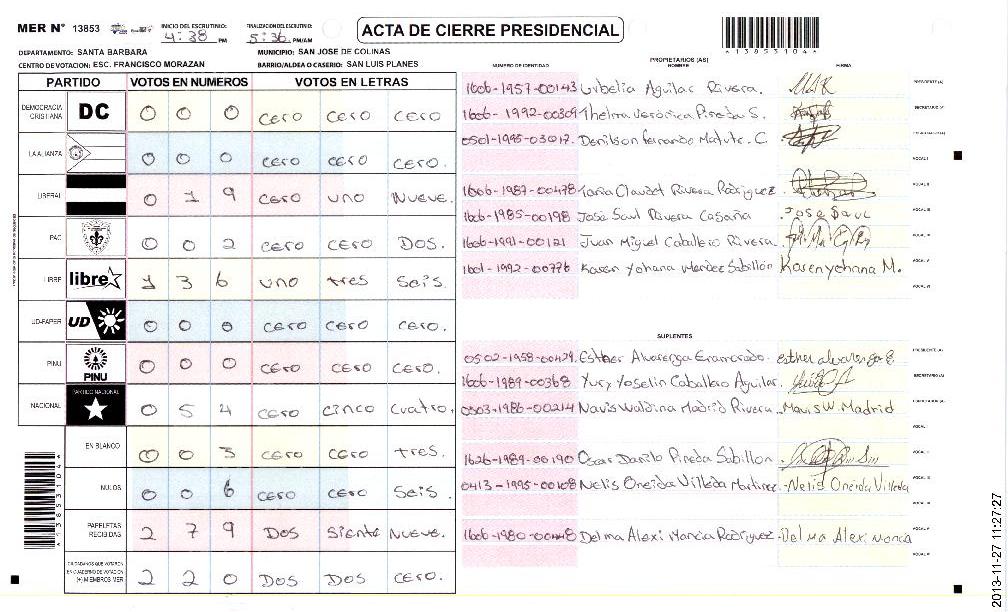 MER N° 13853
INICIO DEL ESCRUTINIO: 4:38 PM
FINALIZACIÓN DEL ESCRUTINIO: 5:36 PM/AM
ACTA DE CIERRE PRESIDENCIAL
*13853104*
DEPARTAMENTO: SANTA BARBARA
MUNICIPIO: SAN JOSE DE COLINAS
CENTRO DE VOTACION: ESC. FRANCISCO MORAZAN
BARRIO/ALDEA O CASERIO: SAN LUIS PLANES
PARTIDO VOTOS EN NUMEROS VOTOS EN LETRAS
DEMOCRACIA CRISTIANA DC 0 0 0 cero cero cero
LA ALIANZA 0 0 0 cero cero cero.
LIBERAL 0 1 9 cero uno Nueve.
PAC 0 0 2 cero cero DOS.
LIBRE libre 1 3 6 uno tres Seis.
UD-FAPER UD 0 0 0 cero cero cero.
PINU PINU 0 0 0 cero cero cero.
NACIONAL PARTIDO NACIONAL 0 5 4 cero cinco cuatro.
EN BLANCO 0 0 3 cero cero tres.
NULOS 0 0 6 cero cero Seis.
PAPELETAS RECIBIDAS 2 7 9 DOS Siente Nueve.
CIUDADANOS QUE VOTARON EN CUADERNO DE VOTACION (+) MIEMBROS MER 2 2 0 DOS DOS cero.
*13853104*
PROPIETARIOS (AS)
NUMERO DE IDENTIDAD NOMBRE FIRMA
1606-1957-00143 Urbelia Aguilar Rivera. PRESIDENTE (A)
1606-1992-00309 Thelma Veronica Pineda S. SECRETARIO (A)
0501-1995-03017. Denilson Fernando Matute. C.
VOCAL I
1606-1987-00478 Tania Claudet Rivera Rodriguez VOCAL II
1606-1985-00198 José Saul Rivera Casaña José Saul VOCAL III
1606-1991-00121 Juan Miguel Caballero Rivera.
1601-1992-00776 Karen Yohana Mendez Sabillón Karen Yohana M. VOCAL V
VOCAL VI
SUPLENTES
0502-1958-00429. Esther Alvarenga Enamorado. esther alvarenga E PRESIDENTE (A)
1606-1989-00368 Yury Yoselin Caballero Aguilar. SECRETARIO (A)
0503-1986-00214 Navis Waldina Madrid Rivera Navis W. Madrid
VOCAL I
1626-1989-00190 Oscar Danilo Pineda Sabillon
0413-1995-00108 Nelis Oneida Villeda Martinez. Nelis Oneida Villeda
1606-1980-00448 Delma Alexi Mancia Rodriguez Delma Alexi Mancia VOCAL V
VOCAL VI
2013-11-27 11:27:27